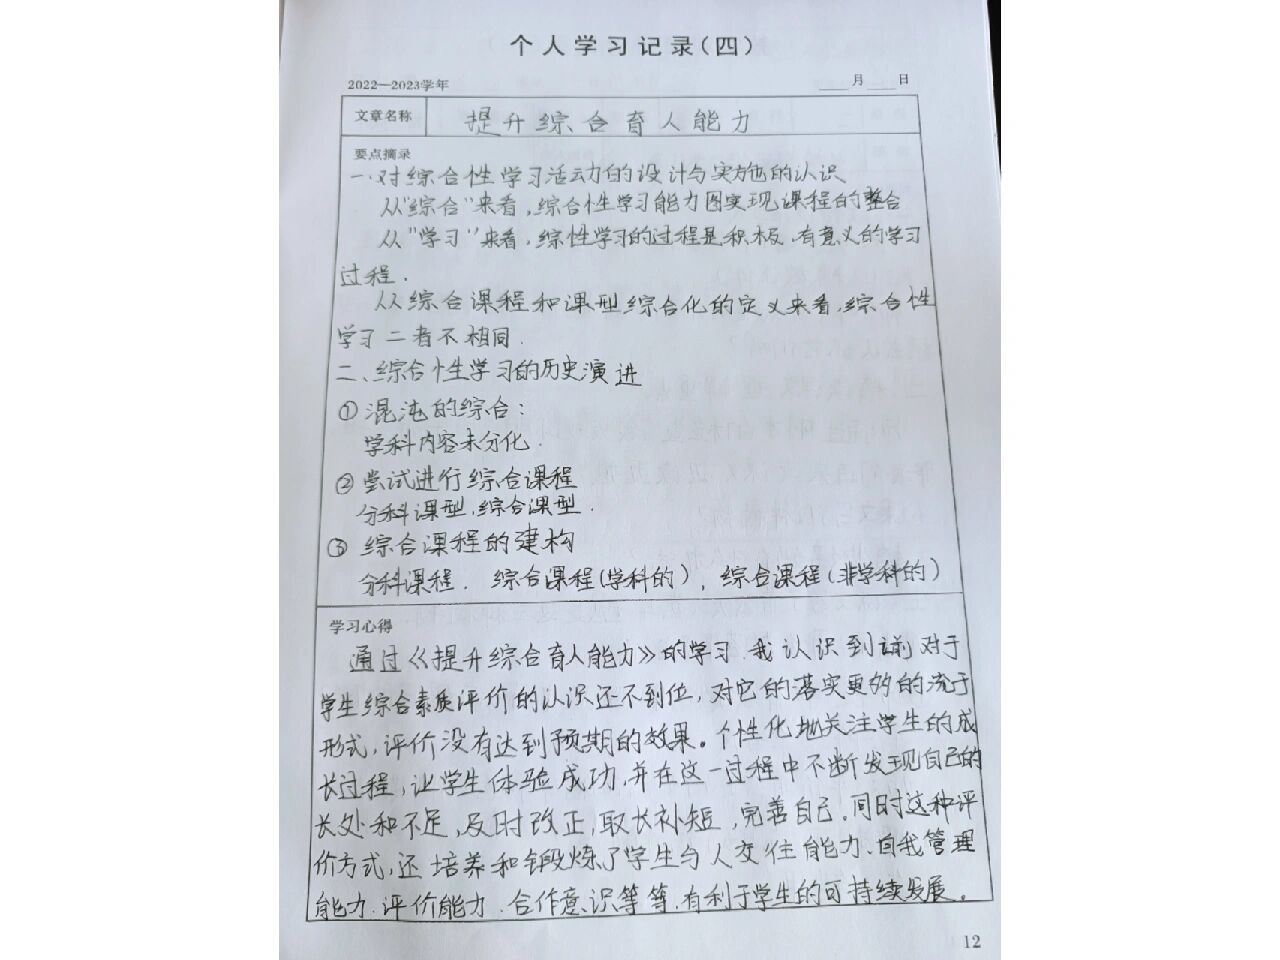 个人学习记录(四)
2022—2023学年 ____月____日
文章名称 提升综合育人能力
要点摘录
一.对综合性学习活动的设计与实施的认识
从"综合"来看,综合性学习能力图实现课程的整合
从"学习"来看,综性学习的过程是积极.有意义的学习
过程.
从综合课程和课型综合化的定义来看,综合性
学习二者不相同.
二、综合性学习的历史演进
①混沌的综合:
学科内容未分化.
②尝试进行综合课程
分科课型,综合课型.
③综合课程的建构
分科课程. 综合课程(学科的),综合课程(非学科的)
学习心得
通过《提升综合育人能力》的学习.我认识到 对于
学生综合素质评价的认识还不到位,对它的落实更多的流于
形式,评价没有达到预期的效果。个性化地关注学生的成
长过程,让学生体验成功,并在这一过程中不断发现自己的
长处和不足,及时改正,取长补短,完善自己.同时这种评
价方式,还培养和锻炼了学生与人交往能力、自我管理
能力.评价能力.合作意识等等,有利于学生的可持续发展。
12